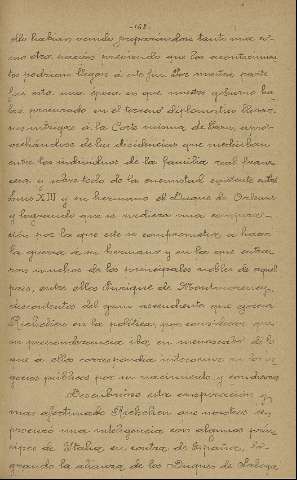 -162-
ello habian venido preparandose tanto una co-
mo otra nacion previendo que los acontecimien-
tos podrian llegar á este fin. Por nuestra parte
fué esta una época en que nuestro gobierno ha-
bia procurado en el terreno diplomático llevar
sus intrigas á la Corte misma de Paris, apro-
vechándose de las disidencias que mediaban
entre los individuos de la familia real france-
sa, y sobre todo de la enemistad existente entre
Luis XIII y su hermano el Duque de Orleans
y logrando que se urdiera una conspira-
ción por la que este se comprometia á hacer
la guerra á su hermano y en la que entra-
ron muchos de los principales nobles de aquel
pais, entre ellos Enrique de Montmorency,
descontentos del gran ascendiente que gozaba
Richelieu en la politica, pues consideraban que
su preponderancia iba en menoscabo de lo
que á ellos correspondia intervenir en los ne-
gocios públicos por su nacimiento y condicion.
Descubriose esta conspiración y
mas afortunado Richelieu que nosotros se
procuró una inteligencia con algunos prin-
cipes de Italia en contra de España, lo-
grando la alianza de los Duques de Saboya